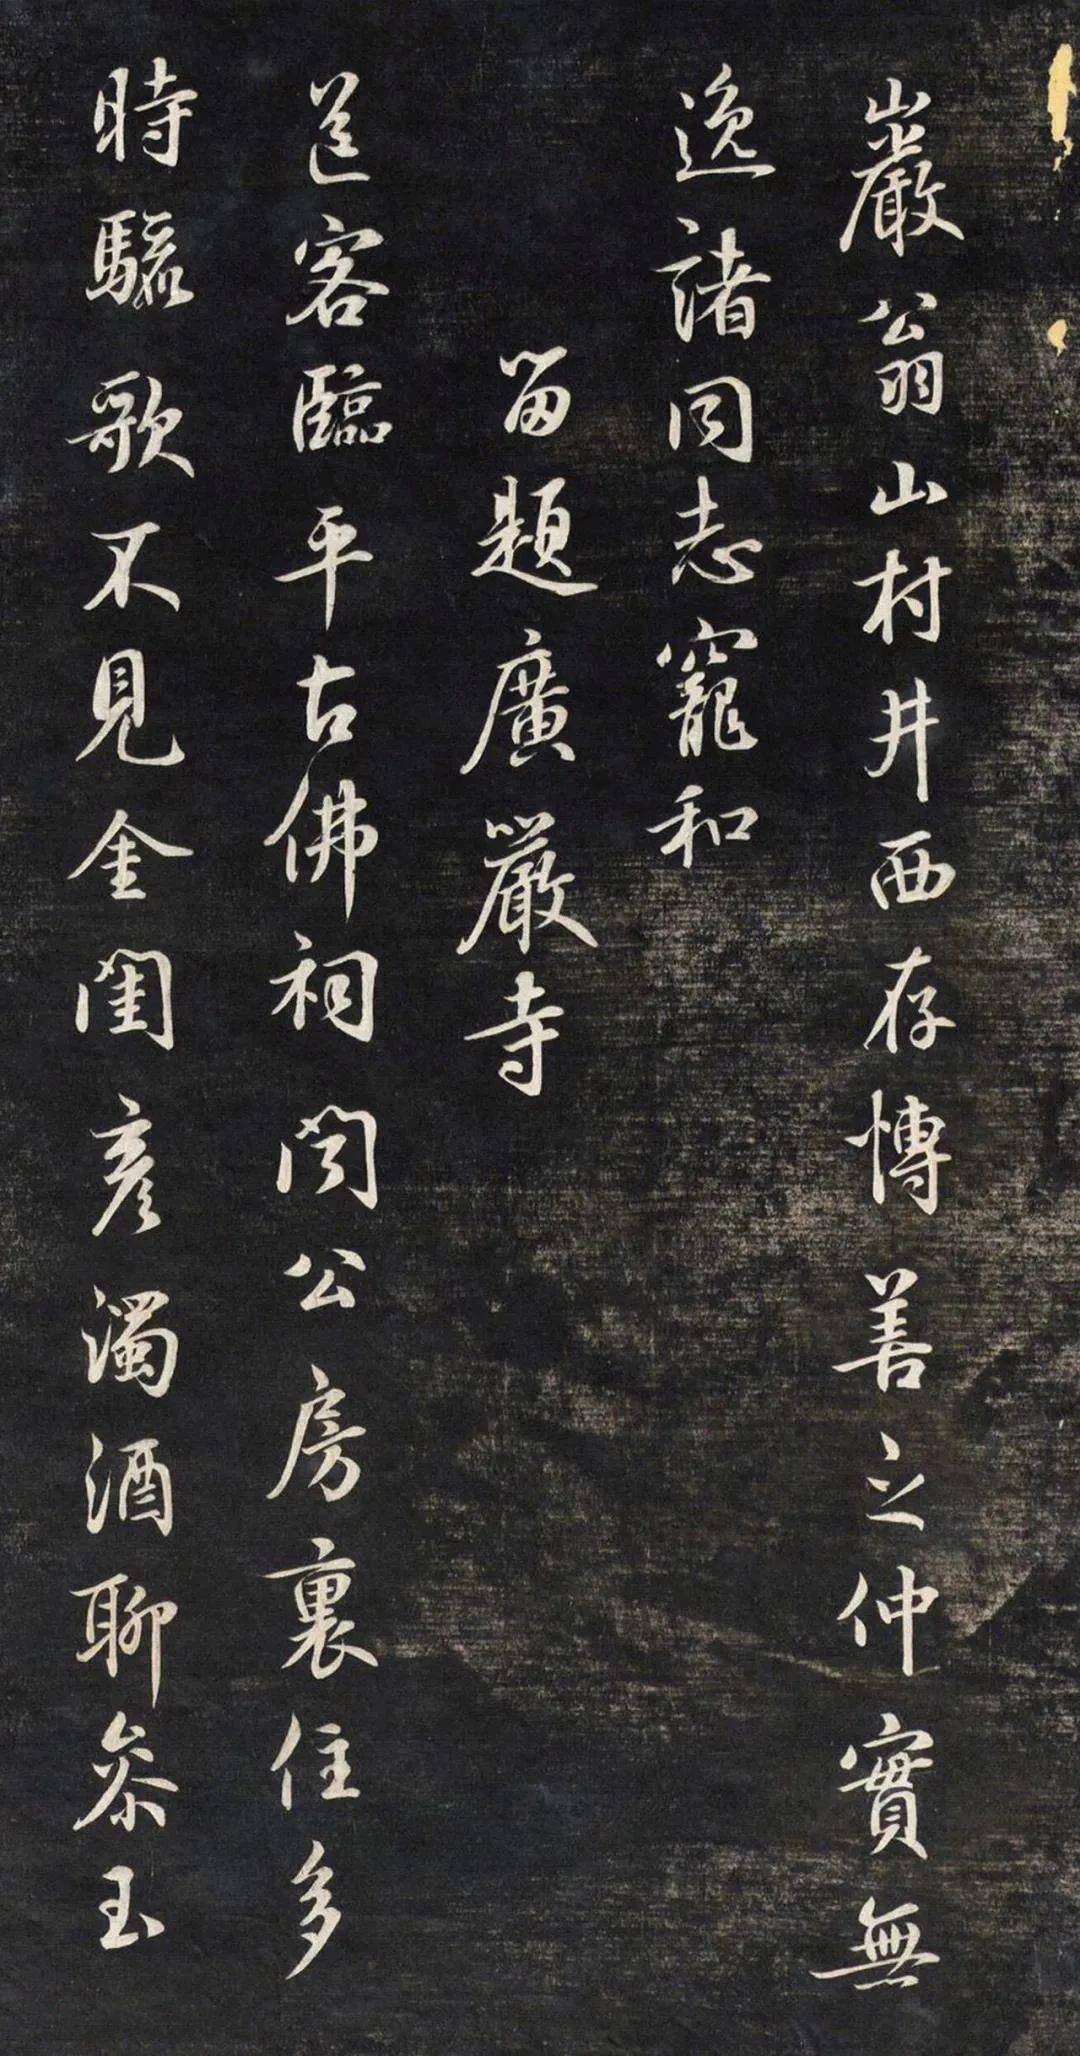 巖翁山村井西存博善之仲實無
逸諸同志寵和
留題廣嚴寺
送客臨平古佛祠閔公房裏住多
時驪歌不見金閨彥濁酒聊參玉